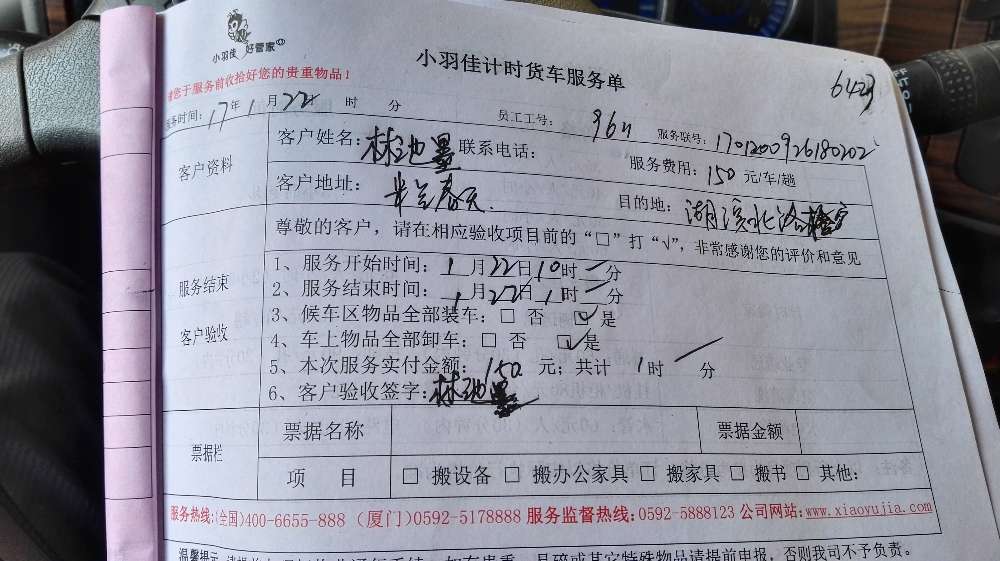 小羽佳 好管家
小羽佳计时货车服务单
请您于服务前收拾好您的贵重物品！
6423
服务时间：17年1月22 时 分 员工工号：9611 服务联号：1701200926180202
客户资料
客户姓名：林池墨 联系电话： 服务费用：150元/车/趟
客户地址：半兰春天 目的地：湖滨北
尊敬的客户，请在相应验收项目前的“□”打“√”，非常感谢您的评价和意见
服务结束
客户验收
1、服务开始时间：1月22日10时 分
2、服务结束时间：1月22日1时 分
3、候车区物品全部装车：□ 否 ☑ 是
4、车上物品全部卸车：□ 否 ☑ 是
5、本次服务实付金额：150 元；共计 1时 分
6、客户验收签字：林池墨
票据栏
票据名称 票据金额
项 目 □ 搬设备 □ 搬办公家具 □ 搬家具 □ 搬书 □ 其他:
服务热线:(全国)400-6655-888 (厦门)0592-5178888 服务监督热线:0592-5888123 公司网站:www.xiaoyujia.com
温馨提示 物品请提前申报，否则我司不予负责。